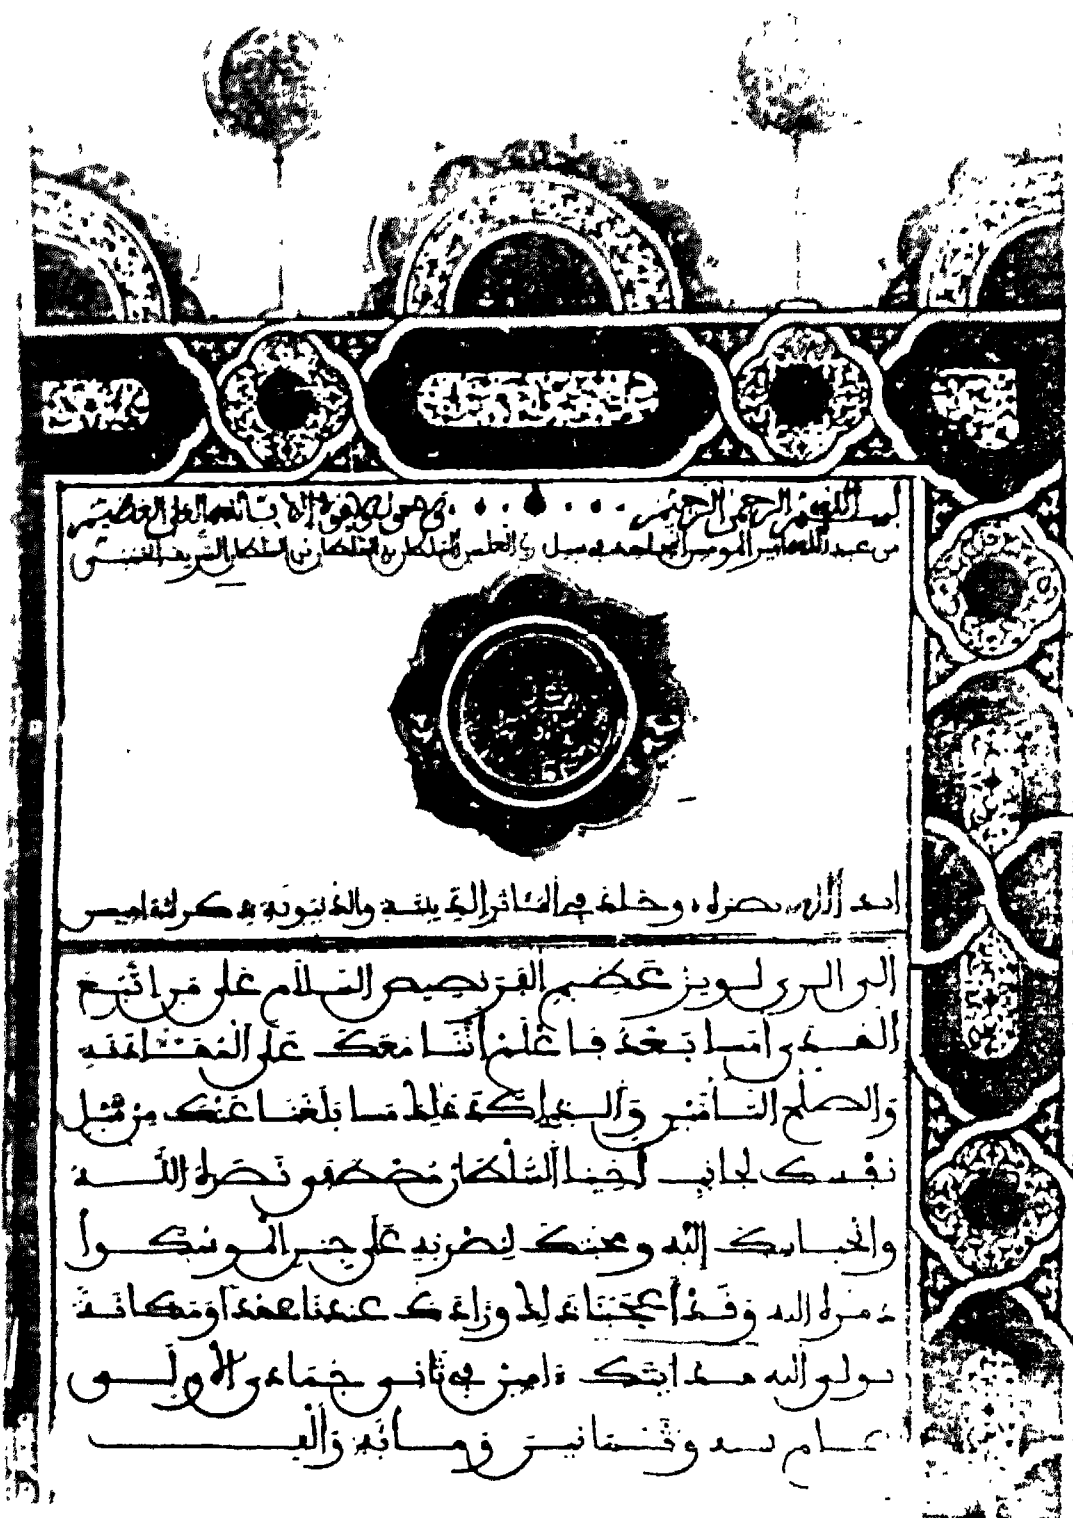 بسم الله الرحمن الرحيم ولا حول ولا قوة إلا بالله العلي العظيم
من عبد الله أمير المومنين المجاهد في سبيل رب العلمين السلطان بن السلطان بن السلطان الشريف الحسني
أيد الله نصره وخلد في المئاثر الدينية والدنيوية ذكره آمين
إلى الري لويز عظيم الفرنصيص السلام على من اتبع
الهدى أما بعد فاعلم أننا معك على المهادنة
والصلح التام والذي أكد ذلك ما بلغنا عنك من ميل
نفسك لجانب أخينا السلطان مصطفى نصره الله
وانحيازك إليه ومحبتك لنصرته على جنس الموسكوا
دمره الله وقد أعجبنا ذلك وزادك عندنا عهدا ومكانة
تولى الله هدايتك آمين في ثاني جمادى الأولى
عام وثمانين ومائة وألف